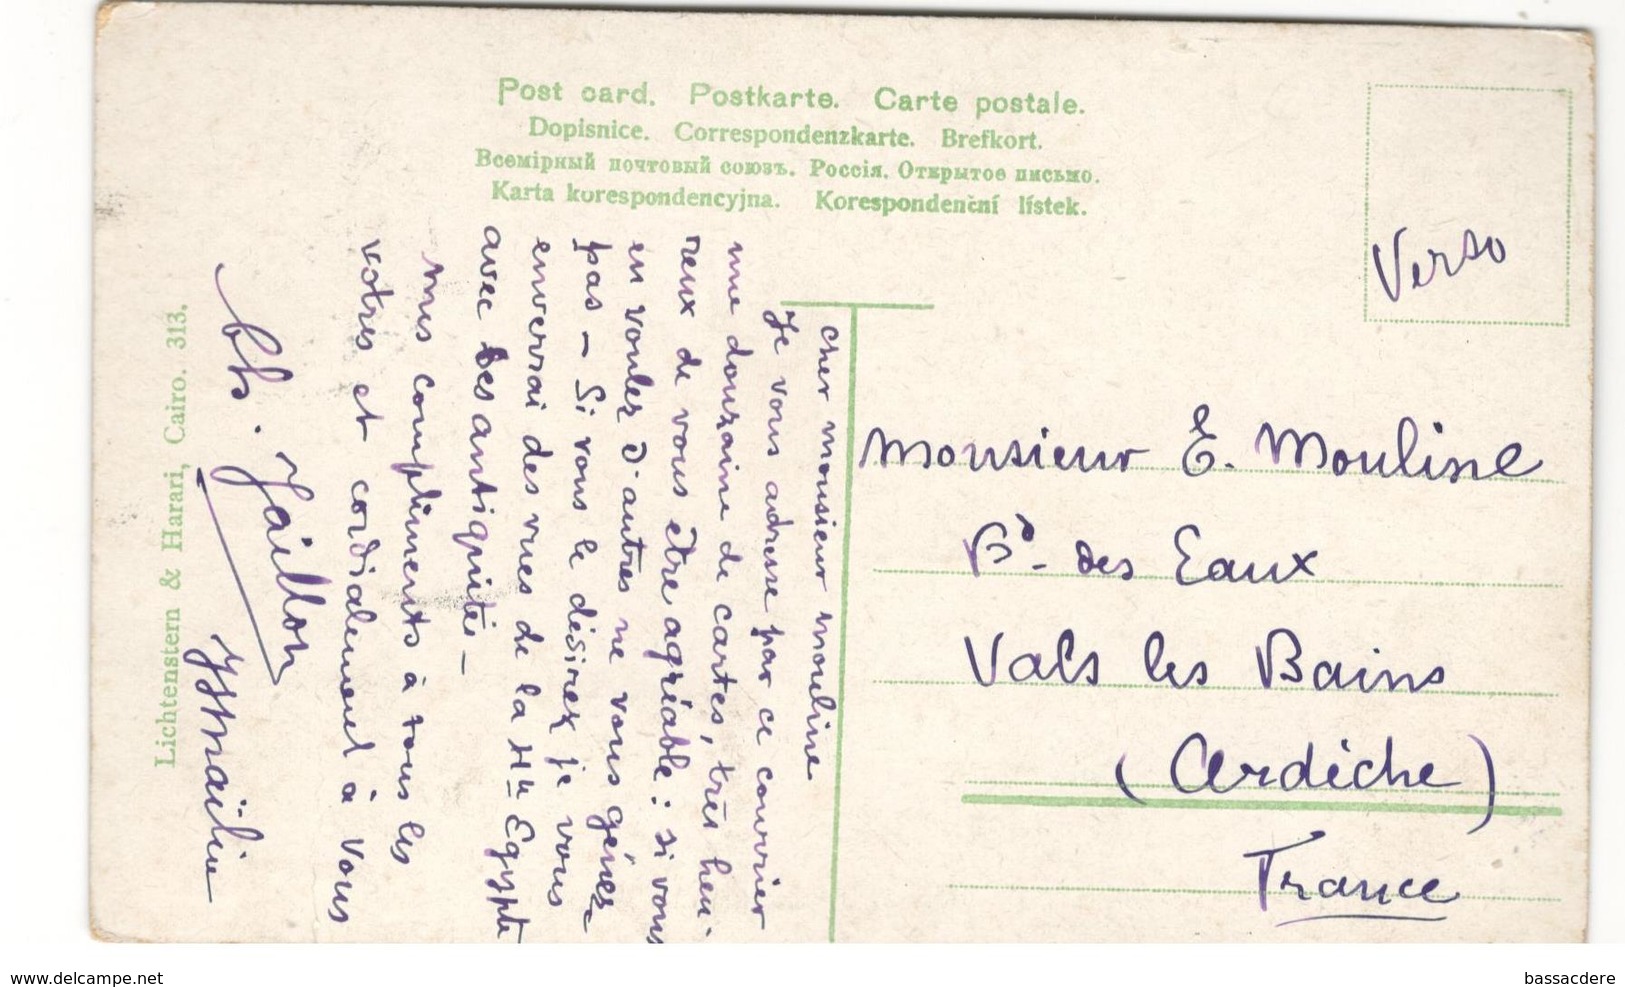 Post card. Postkarte. Carte postale.
Dopisnice. Correspondenzkarte. Brefkort.
Всемірный почтовый союзъ. Россія. Открытое письмо.
Karta korespondencyjna. Korespondenční lístek.
Verso
cher monsieur mouline
Je vous adresse par ce courrier
une douzaine de cartes, très heu-
reux de vous être agréable : si vous
en voulez d'autres ne vous gênez
pas - Si vous le désirez je vous
enverrai des vues de la Hte Egypte
avec les antiquités -
mes compliments à tous les
votres et cordialement à vous
Ch. Jaillon
Ismaïlia
Monsieur E. Mouline
Bd. des Eaux
Vals les Bains
(Ardèche)
France
Lichtenstern & Harari, Cairo. 313.
www.delcampe.net
bassacdere